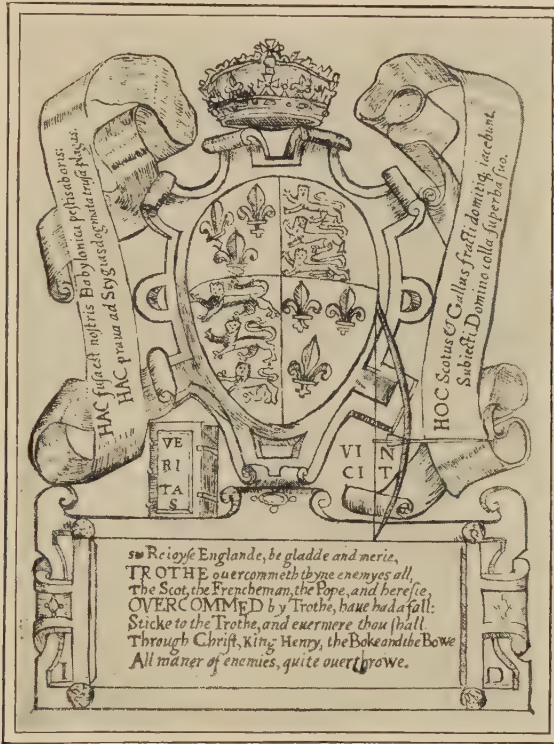 HAC fusa est nostris Babylonica pestis ab oris:
HAC praua ad Stygias dogmata trusa plagas.
HOC Scotus & Gallus fracti domitiq, iacebunt
Subiecti Domino colla superba suo.
VE
RI
TA
S
VI N
CI T
Reioyse Englande, be gladde and merie,
TROTHE ouercommeth thyne enemyes all,
The Scot, the Frencheman, the Pope, and heresie,
OVERCOMMED by Trothe, haue had a fall:
Sticke to the Trothe, and euermere thou shall
Through Christ, King Henry, the Boke and the Bowe
All maner of enemies, quite ouerthrowe.
I D